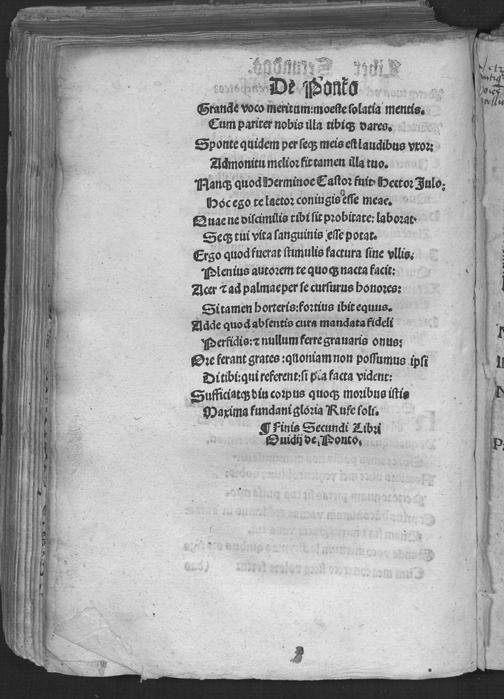 De Ponto
Grande voco meritum: moeste solatia mentis.
Cum pariter nobis illa tibiqꝫ dares.
Sponte quidem per seqꝫ meis est laudibus vxor:
Admonitu melior fit tamen illa tuo.
Nanqꝫ quod Hermioe Castor fuit: Hector Julo:
Hoc ego te laetor coniugis esse meae.
Quae ne discimilis tibi sit probitate: laborat.
Seqꝫ tui vita sanguinis esse potat.
Ergo quod fuerat stimulis factura sine vllis:
Plenius autorem te quoqꝫ nacta facit:
Acer ⁊ ad palmae per se cursurus honores:
Si tamen horteris: fortius ibit equus.
Adde quod absentis cura mandata fideli
Perfidis: ⁊ nullum ferre grauaris onus:
Ore ferant grates: qm̄oniam non possumus ipsi
Di tibi: qui referent: si pia facta vident:
Sufficiatqꝫ diu corpus quoqꝫ moribus istis
Maxima fundani gloria Rufe soli.
¶ Finis Secundi Libri
Ouidij de, Ponto.